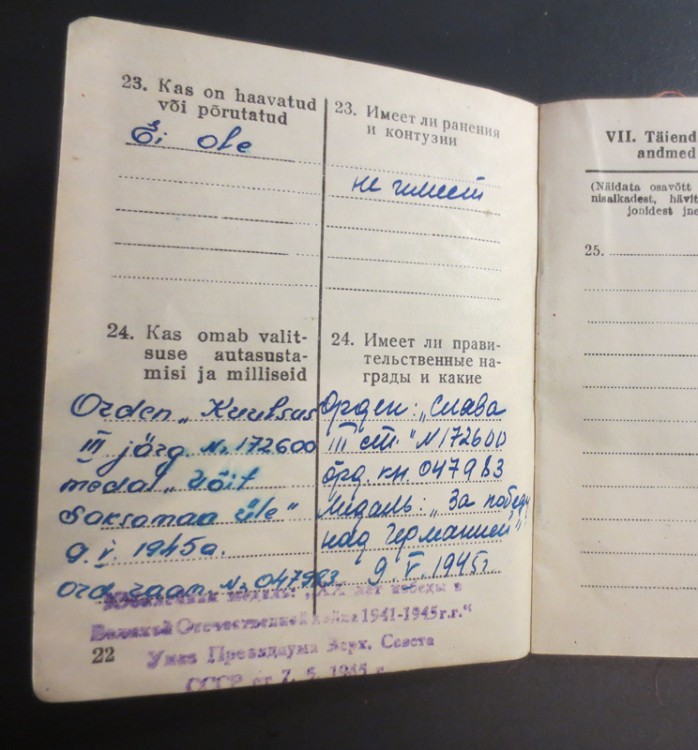 23. Kas on haavatud
või põrutatud
Ei ole
23. Имеет ли ранения
и контузии
не имеет
24. Kas omab valit-
suse autasusta-
misi ja milliseid
Orden „Kuulsus
III järg. № 172600
medal „Võit
Saksamaa üle"
9. V. 1945a.
ord. raam. № 047983
24. Имеет ли прави-
тельственные на-
грады и какие
Орден: „Слава
III ст." N 172600
орд. кн. 047983
Медаль: „За победу
над Германией"
9. V. 1945г.
Юбилейная медаль: „ХХ лет победы в
Великой Отечественной войне 1941-1945 г.г."
Указ Президиума Верх. Совета
СССР от 7. 5. 1965 г
22
VII. Täiend
andmed
(Näidata osavõtt
nisalkadest, hävit
jonidest jn
25.